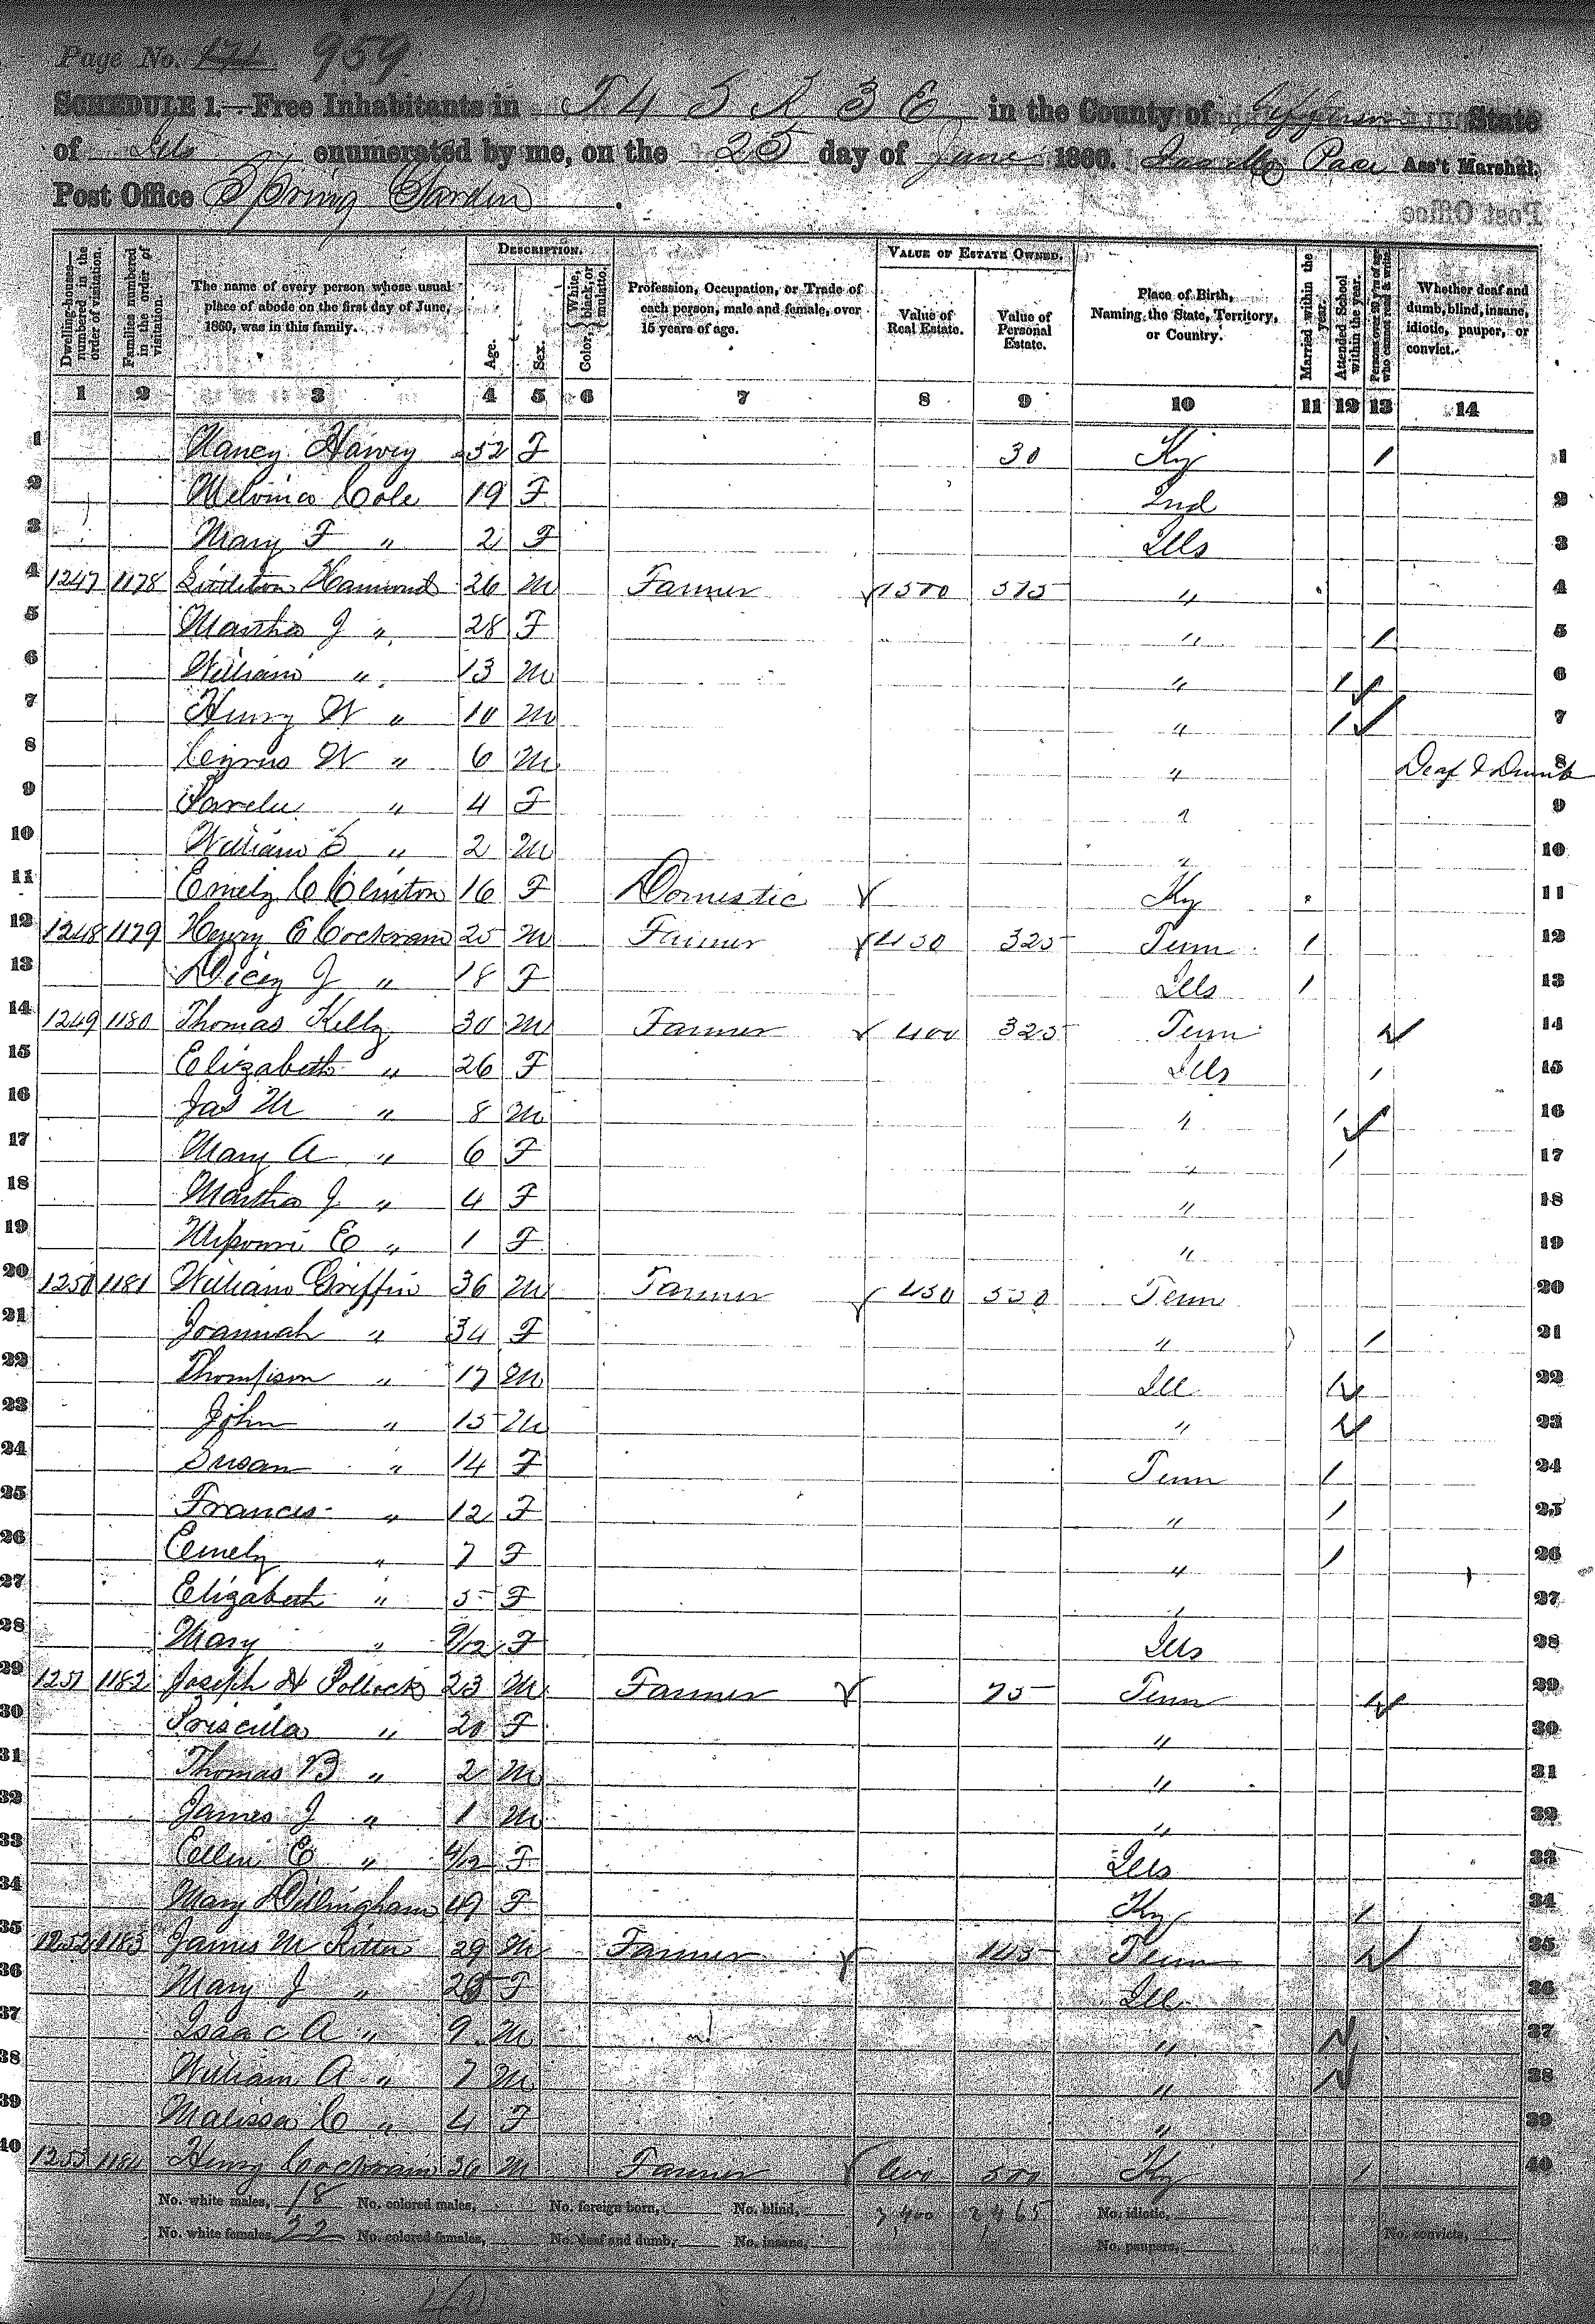 Page No. 171 959
SCHEDULE 1.—Free Inhabitants in T 4 S R 3 E in the County of Jefferson State
of Ills enumerated by me, on the 25 day of June 1860. Pace Ass't Marshal.
Post Office Spring Garden
Post Office
DESCRIPTION. VALUE OF ESTATE OWNED.
Dwelling-houses—numbered in the order of visitation. Families numbered in the order of visitation. The name of every person whose usual place of abode on the first day of June, 1860, was in this family. Age. Sex. Color, White, black, or mulatto. Profession, Occupation, or Trade of each person, male and female, over 15 years of age. Value of Real Estate. Value of Personal Estate. Place of Birth, Naming the State, Territory, or Country. Married within the year. Attended School within the year. Persons over 20 y'rs of age who cannot read & write. Whether deaf and dumb, blind, insane, idiotic, pauper, or convict.
1 2 3 4 5 6 7 8 9 10 11 12 13 14
1 Nancy 52 F 30 Ky / 1
2 Melvina Cole 19 F Ind 2
3 Mary F " 2 F Ills 3
4 1247 1178 Littleton Hammond 26 M Farmer 1500 575 " 4
5 Martha J " 28 F " / 5
6 William " 13 M " / 6
7 Henry W " 10 M " / 7
8 Cyrus W " 6 M " Deaf & Dumb 8
9 " 4 F " 9
10 William S " 2 M " 10
11 Emely C Clinton 16 F Domestic Ky 11
12 1248 1179 Henry E Cockram 25 M Farmer 450 325 Tenn / 12
13 Dicey J " 18 F Ills / 13
14 1249 1180 Thomas Kelly 30 M Farmer 400 325 Tenn / 14
15 Elizabeth " 26 F Ills / 15
16 Jas M " 8 M " / 16
17 Mary A " 6 F " / 17
18 Martha J " 4 F " 18
19 Missouri E " 1 F " 19
20 1250 1181 William Griffin 36 M Farmer 450 550 Tenn 20
21 Joannah " 34 F " / 21
22 Thompson " 17 M Ill / 22
23 John " 15 M " / 23
24 Susan " 14 F Tenn / 24
25 Frances " 12 F " / 25
26 Emely " 7 F " / 26
27 Elizabeth " 5 F " 27
28 Mary " 9/12 F Ills 28
29 1251 1182 Joseph H Pollock 23 M Farmer 75 Tenn / 29
30 Priscilla " 20 F " 30
31 Thomas B " 2 M " 31
32 James J " 1 M " 32
33 Ellen E " 4/12 F Ills 33
34 Mary Dillingham 49 F Ky / 34
35 1252 1183 James M Ritter 29 M Farmer 145 Tenn / 35
36 Mary J " F Ill 36
37 Isaac A " 9 M " / 37
38 William A " 7 M " / 38
39 Malissa C " 4 F " 39
40 1253 1184 Henry Cochrain 30 M Farmer 600 500 Ky / 40
No. white males, 18 No. colored males, No. foreign born, No. blind, 3,400 2,465 No. idiotic,
No. white females, 22 No. colored females, No. deaf and dumb, No. insane, No. paupers, No. convicts,